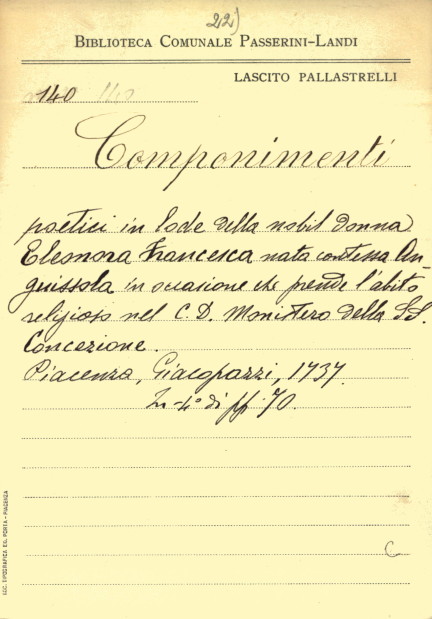 22)
BIBLIOTECA COMUNALE PASSERINI-LANDI
LASCITO PALLASTRELLI
140
Componimenti
poetici in lode della nobil donna
Eleonora Francesca nata contessa An-
guissola in occasione che prende l'abito
religioso nel C. D. Monistero della SS.
Concezione.
Piacenza, Giacopazzi, 1737.
In-4° di ff. 70.
C
SOC. TIPOGRAFICA ED. PORTA - PIACENZA